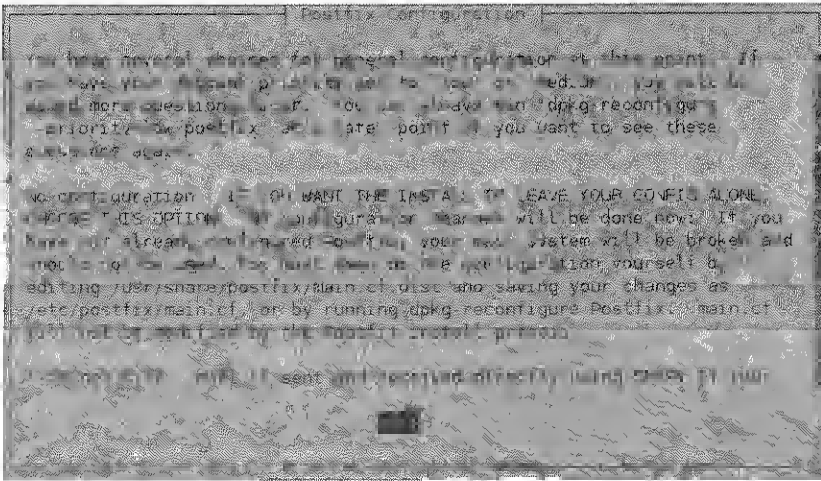 Postfix Configuration
You have several choices for general configuration at this point. If
you have your debconf priority set to low or medium, you will be
asked more questions later. You can always run dpkg-reconfigure
priority=low postfix at a later point if you want to see these
questions again.
No configuration IF YOU WANT THE INSTALL TO LEAVE YOUR CONFIG ALONE,
CHOOSE THIS OPTION. No configuration changes will be done now. If you
have not already configured Postfix, your mail system will be broken and
should not be used. You must then do the configuration yourself by
editing /usr/share/postfix/main.cf.dist and saving your changes as
/etc/postfix/main.cf, or by running dpkg-reconfigure Postfix. main.cf
will not be modified by the Postfix install process.
mail is sent and received directly using SMTP. If your